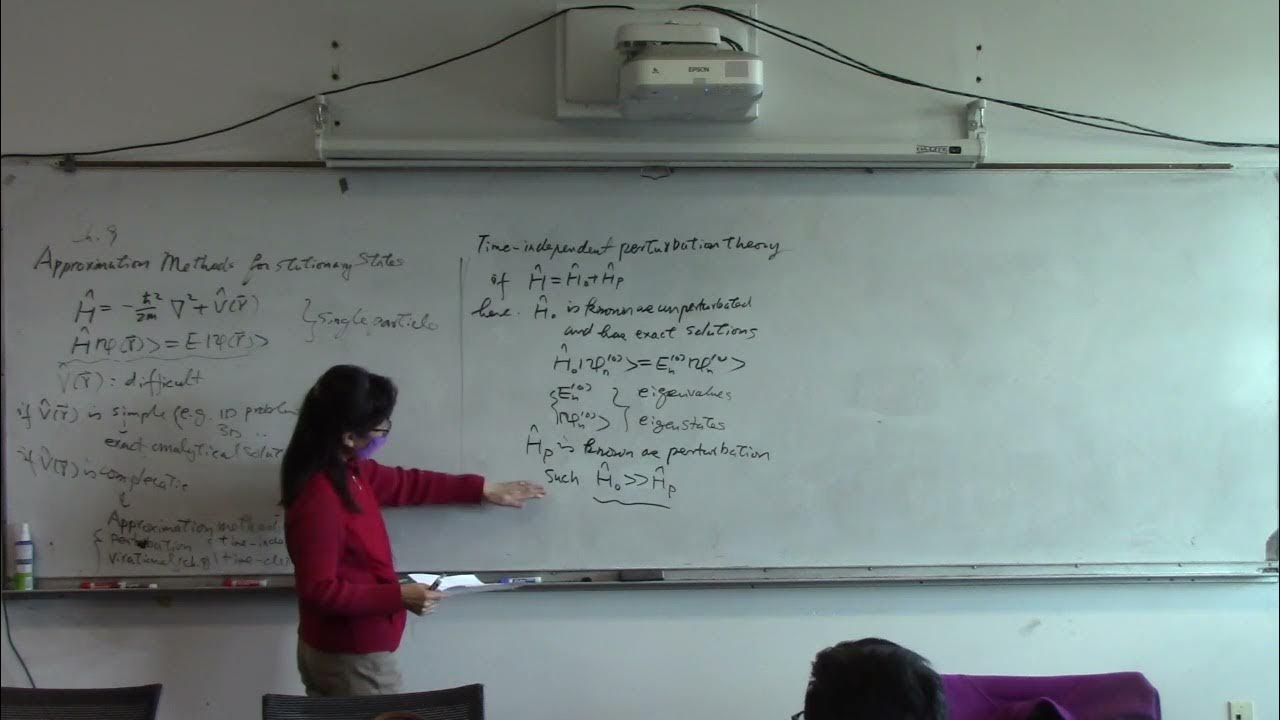 EPSON
ch. 9
Approximation Methods for Stationary States
Ĥ = -ħ²/2m ∇² + V̂(r⃗)
} single particle
Ĥ|ψ(r⃗)> = E|ψ(r⃗)>
V̂(r⃗): difficult
if V̂(r⃗) is simple (e.g. 1D proble
3D
exact analytical solut
if V̂(r⃗) is complecatie
Approximation method
{ perturbation (time-inde
Time-independent perturbation theory
if Ĥ = Ĥ₀ + Ĥp
here. Ĥ₀ is known as unperturbated
and has exact solutions
Ĥ₀|ψn⁽⁰⁾> = En⁽⁰⁾|ψn⁽⁰⁾>
{ En⁽⁰⁾ } eigenvalues
{ |ψn⁽⁰⁾> } eigenstates
Ĥp is known as perturbation
such Ĥ₀ >> Ĥp